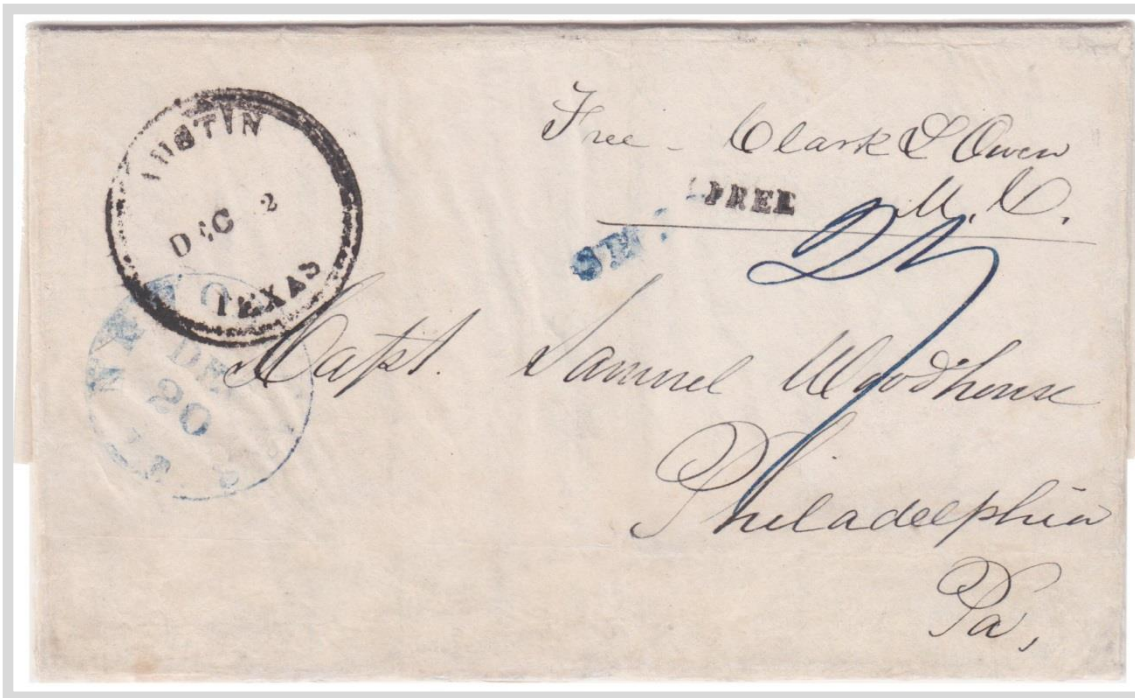 AUSTIN
DEC 2
TEXAS
Free - Clark L Owen
M.C.
FREE
27
DE
20
Capt. Samuel Woodhouse
Philadelphia
Pa,